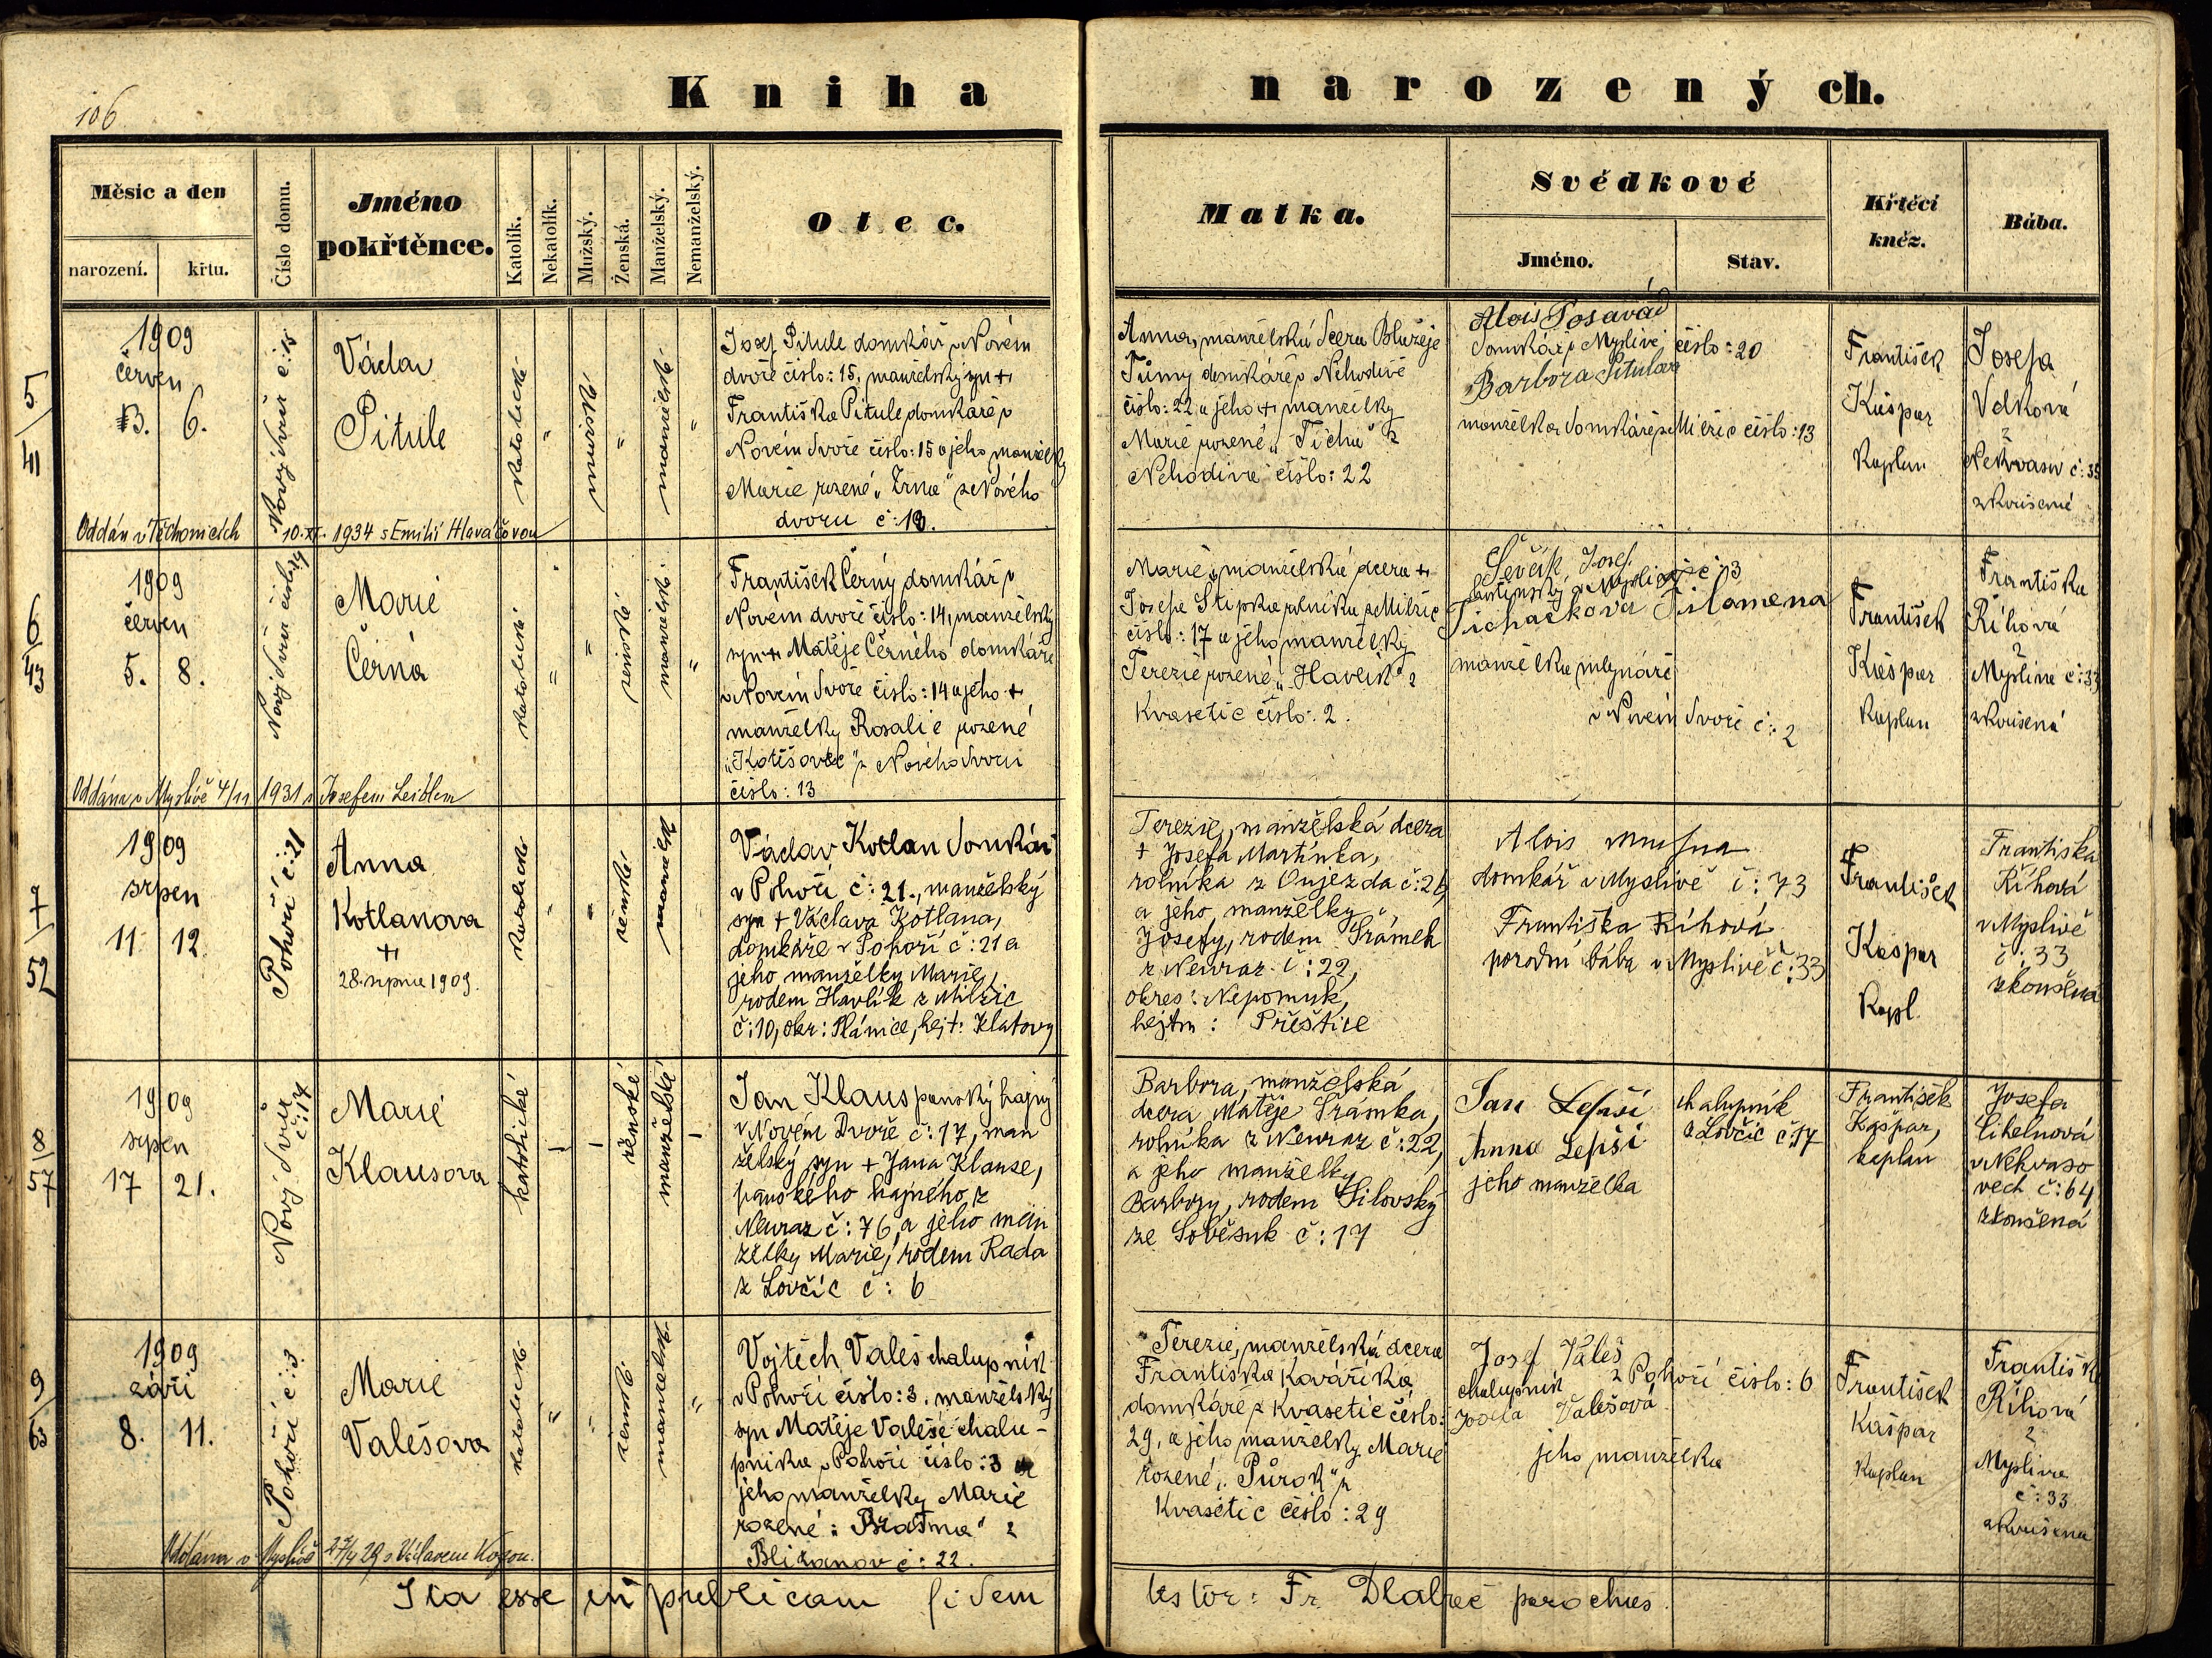 106
Kniha narozených.
Měsíc a den
narození.
křtu.
Číslo domu.
Jméno
pokřtěnce.
Katolík.
Nekatolík.
Mužský.
Ženská.
Manželský.
Nemanželský.
Otec.
Matka.
Svědkové
Jméno.
Stav.
Křtěcí
kněz.
Bába.
5
41
1909
červen
3. 6.
Nový dvůr č:15
Václav
Pitule
katolické
"
mužské
"
manželské
"
Josef Pitule domkář v Novém
dvoře číslo: 15, manželský syn +
Františka Pitule domkáře v
Novém dvoře číslo: 15 a jeho manželky
Marie rozené „Zrna" z Nového
dvoru č:
Anna, manželská dcera Blažeje
Tůmy domkáře v Nehodivě
číslo: 22 a jeho + manželky
Marie rozené „Tichá" z
Nehodiva číslo: 22
Alois Posavád
domkář v Myslivě číslo: 20
Barbora Pitulova
manželka domkáře z Milčic číslo: 13
František
Kašpar
Kaplan
Josefa
Velková
z
Nekvasov č: 35
zkoušená
Oddán v Těchonicích 10.XI. 1934 s Emilií Hlaváčovou
6
43
1909
červen
5. 8.
Nový dvůr číslo 14
Marie
Černá
katolické
"
"
ženské
manželské
"
František Černý domkář v
Novém dvoře číslo: 14, manželský
syn + Matěje Černého domkáře
v Novém dvoře číslo: 14 a jeho +
manželky Rosalie rozené
z Nového dvoru
číslo: 13
Marie, manželská dcera +
Josefa Štipka rolníka z Milčic
číslo: 17 a jeho manželky
Terezie rozené „Havlík" z
Kvasetic číslo: 2.
Ševčík Josef
z Myslivě č: 3
Ticháčková Filomena
manželka mlynáře
v Novém dvoře č: 2
František
Kašpar
Kaplan
Františka
Říhová
z
Mysliva č: 33
zkoušená
Oddána v Myslivě 4/11 1931 s Josefem Leiblem
7
52
1909
srpen
11. 12.
Pohoří č: 21
Anna
Kotlanova
+
28. srpna 1909.
katolické
"
"
ženské
manželské
"
Václav Kotlan domkář
v Pohoří č: 21., manželský
syn + Václava Kotlana,
domkáře v Pohoří č: 21 a
jeho manželky Marie,
rodem Havlík z Milčic
č: 10, okr: Plánice, hejt: Klatovy
Terezie, manželská dcera
+ Josefa Martínka,
rolníka z Oujezda č: 26
a jeho manželky
Josefy, rodem Šrámek
z Neuraz č: 22,
okres: Nepomuk,
hejtm: Přeštice
Alois
domkář v Myslivě č: 73
Františka Říhová
porodní bába v Myslivě č: 33
František
Kašpar
Kapl.
Františka
Říhová
v Myslivě
č: 33
zkoušená
8
57
1909
srpen
17 21.
Nový dvůr č: 17
Marie
Klausova
katolické
–
–
ženské
manželské
–
Jan Klaus panský hajný
v Novém Dvoře č: 17, man
želský syn + Jana Klause,
panského hajného z
Neuraz č: 76, a jeho man
želky Marie, rodem Rada
z Lovčic č: 6
Barbora, manželská
dcera Matěje Šrámka,
rolníka z Neuraz č: 22,
a jeho manželky
Barbory, rodem Silovský
ze Soběsuk č: 17
Jan Lepší chalupník
z Lovčic č: 17
Anna Lepší
jeho manželka
František
Kašpar,
kaplan
Josefa
Cihelnová
v Nekvaso
vech č: 64
zkoušená
9
63
1909
září
8. 11.
Pohoří č: 3.
Marie
Valešova
katolické
"
"
ženské
manželské
"
Vojtěch Valeš chalupník
v Pohoří číslo: 3. manželský
syn Matěje Valeše chalu-
pníka v Pohoří číslo: 3 a
jeho manželky Marie
rozené: z
Blizanov č: 22.
Terezie, manželská dcera
Františka Kováříka
domkáře z Kvasetic číslo:
29, a jeho manželky Marie
rozené „Půrok" z
Kvasetic číslo: 29
Josef Valeš
chalupník z Pohoří číslo: 6
Josefa Valešová
jeho manželka
František
Kašpar
Kaplan
Františka
Říhová
z
Mysliva
č: 33
zkoušená
Oddána v Myslivě 29 s Václavem
Ita esse in publicam fidem testor: Fr. Dlabač parochus.